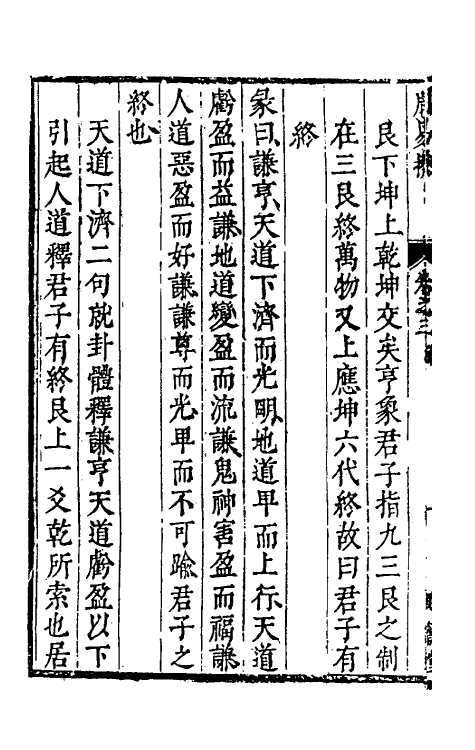 卷之三
艮下坤上乾坤交矣亨象君子指九三艮之制
在三艮終萬物又上應坤六代終故曰君子有
終
彖曰謙亨天道下濟而光明地道卑而上行天道
虧盈而益謙地道變盈而流謙鬼神害盈而福謙
人道惡盈而好謙謙尊而光卑而不可踰君子之
終也
天道下濟二句就卦體釋謙亨天道虧盈以下
引起人道釋君子有終艮上一爻乾所索也居